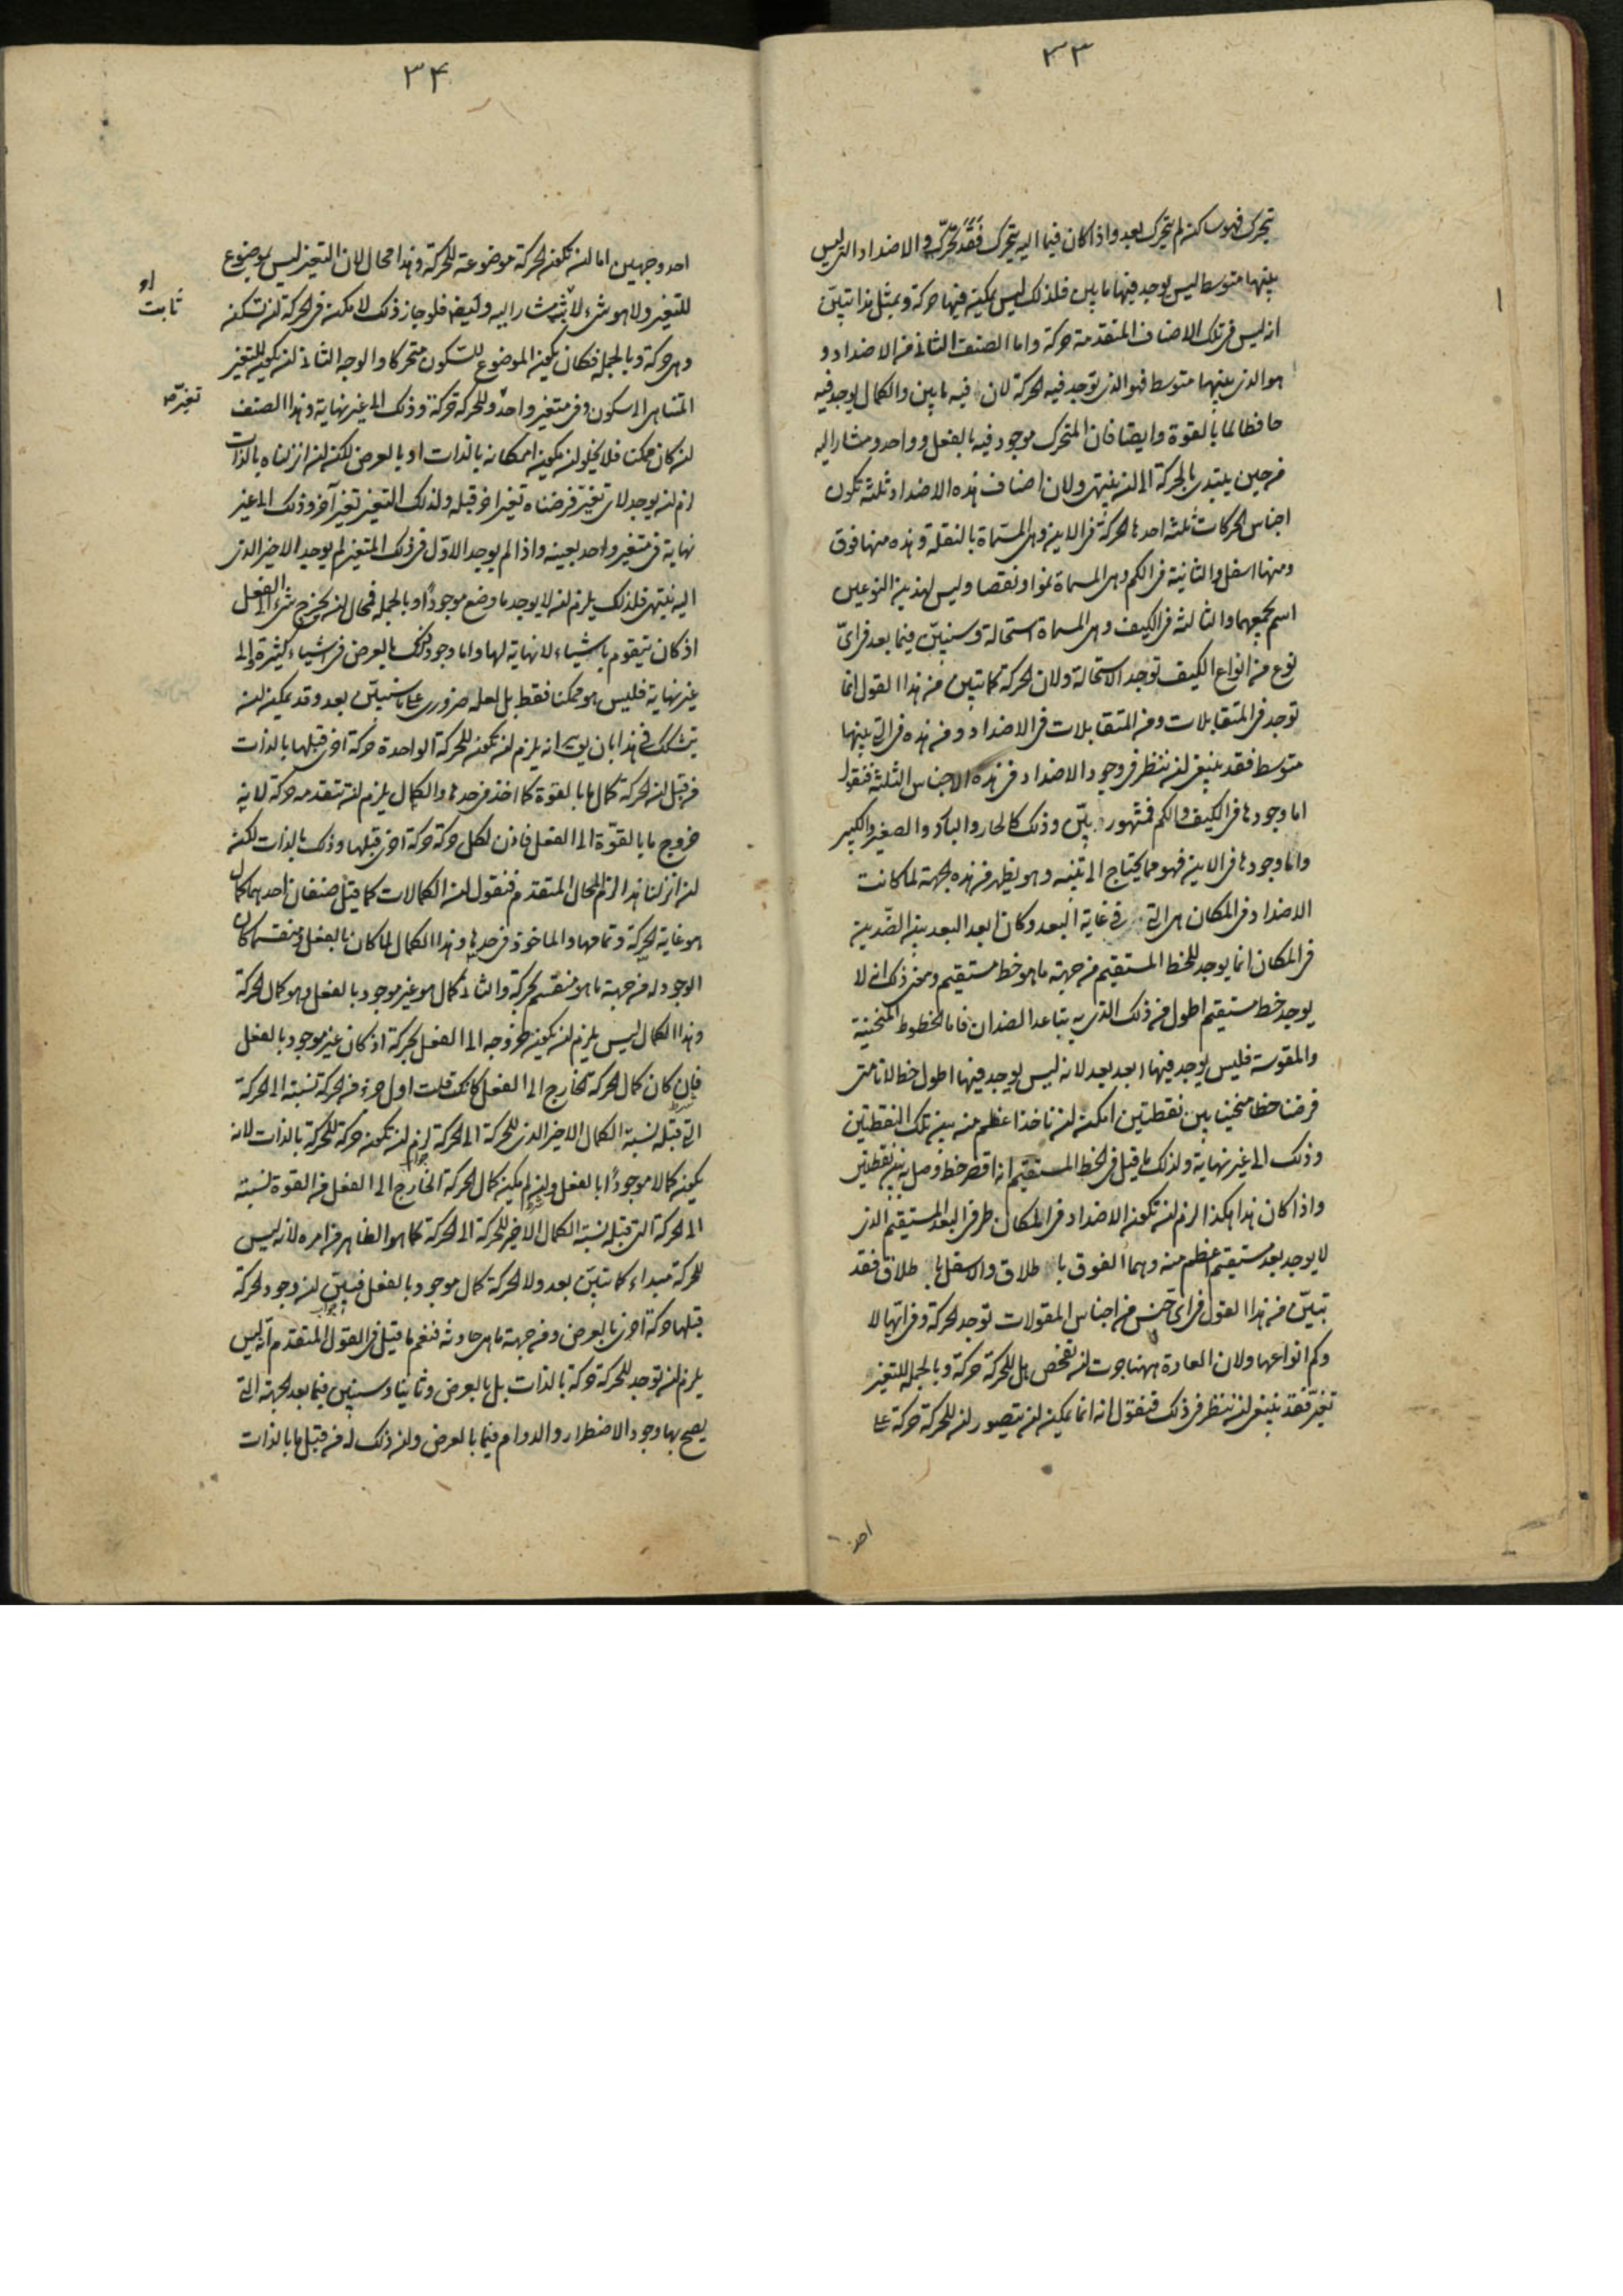 ٣٣
يتحرك فهو ساكن لم يتحرك بعد واذا كان فيما اليه يتحرك فقد تحرك والاضداد التى ليس
بينهما متوسط ليس يوجد فيها ما بين فلذلك ليس يمكن فيها حركة وبمثل هذا تبين
انه ليس فى تلك الاصناف المتقدمة حركة واما الصنف الثانى من الاضداد و
هو الذى بينهما متوسط فهو الذى توجد فيه الحركة لان فيه ما بين والكمال يوجد فيه
حافظا لما بالقوة وايضا فان المتحرك موجود فيه بالفعل وواحد ومشار اليه
من حين يبتدى بالحركة الى ان ينتهى ولان اصناف هذه الاضداد ثلثة تكون
اجناس الحركات ثلثة احدها الحركة فى الاين وهى المسماة بالنقلة وهذه منها فوق
ومنها اسفل والثانية فى الكم وهى المسماة نموا ونقصا وليس لهذين النوعين
اسم يجمعهما والثالثة فى الكيف وهى المسماة استحالة وسنبين فيما بعد فى اى
نوع من انواع الكيف توجد الاستحالة ولان الحركة كما تبين من هذا القول انما
توجد فى المتقابلات ومن المتقابلات فى الاضداد ومن هذه فى التى بينها
متوسط فقد ينبغى ان ننظر فى وجود الاضداد فى هذه الاجناس الثلثة فنقول
اما وجودها فى الكيف والكم فمشهور بين وذلك كالحار والبارد والصغير والكبير
واما وجودها فى الاين فهو مما يحتاج الى تبيينه وهو يظهر من هذه الجهة لما كانت
الاضداد فى المكان هى التى فى غاية البعد وكان ابعد البعد بين الضدين
فى المكان انما يوجد للخط المستقيم من جهة ما هو خط مستقيم ومعنى ذلك انه لا
يوجد خط مستقيم اطول من ذلك الذى به يتباعد الضدان فاما الخطوط المنحنية
والمقوسة فليس يوجد فيها ابعد بعد لانه ليس يوجد فيها اطول خط لانا متى
فرضنا خطا منحنيا بين نقطتين امكن ان ناخذ اعظم منه بين تلك النقطتين
وذلك الى غير نهاية ولذلك ما قيل فى الخط المستقيم انه اقصر خط وصل بين نقطتين
واذا كان هذا هكذا لزم ان تكون الاضداد فى المكان طرفى البعد المستقيم الذى
لا يوجد بعد مستقيم اعظم منه وهما الفوق باطلاق والاسفل باطلاق فقد
تبين من هذا القول فى اى جنس من اجناس المقولات توجد الحركة وفى ايها لا
وكم انواعها ولان العادة ههنا جرت ان نفحص هل للحركة حركة وبالجملة للتغير
تغير فقد ينبغى ان ننظر فى ذلك فنقول انه انما يمكن ان يتصور ان للحركة حركة على
احد
٣۴
احد وجهين اما ان تكون الحركة موضوعة للحركة وهذا محال لان التغير ليس بموضوع
للتغير ولا هو شىء مشار اليه فلو جاز ذلك لامكن فى الحركة ان تسكن
ثابت
وهى حركة وبالجملة فكان يكون الموضوع للسكون متحركا والوجه الثانى ان يكون للتغير
المتناهى الى سكون وفى متغير واحد وللحركة حركة وذلك الى غير نهاية وهذا الصنف
تغير
ان كان ممكنا فلا يخلو ان يكون امكانه بالذات او بالعرض لكن ان انزلناه بالذات
لزم ان يوجد لاى تغير فرضناه تغيرا اخر قبله ولذلك التغير تغير آخر وذلك الى غير
نهاية فى متغير واحد بعينه واذا لم يوجد الاول فى ذلك المتغير لم يوجد الاخير الذى
اليه ينتهى فلذلك يلزم ان لا يوجد ما وضع موجودا وبالجملة فمحال ان يخرج شىء الى الفعل
اذ كان يتقوم باشياء لا نهاية لها واما وجود ذلك بالعرض فى اشياء كثيرة والى
غير نهاية فليس هو ممكنا فقط بل لعله ضرورى على ما سنبين بعد وقد يمكن ان
يتشكك فى هذا بان يق انه يلزم ان تكون للحركة الواحدة حركة اخرى قبلها بالذات
من قبل ان الحركة كمال ما بالقوة كما اخذ فى حدها والكمال يلزم ان تتقدمه حركة لانه
خروج ما بالقوة الى الفعل فاذن لكل حركة حركة اخرى قبلها وذلك بالذات لكن
ان انزلنا هذا لزم المحال المتقدم فنقول ان الكمالات كما قيل صنفان احدهما كمال
هو غاية الحركة وتمامها والماخوذ فى حدها وهذا الكمال لما كان بالفعل ومنقسما كان
الوجود له من جهة ما هو منقسم بحركة والثانى كمال هو غير موجود بالفعل وهو كمال الحركة
وهذا الكمال ليس يلزم ان يكون خروجه الى الفعل بحركة اذ كان غير موجود بالفعل
فان كان كمال الحركة الخارج الى الفعل كانك قلت اول جزء من الحركة نسبته الى الحركة
التى قبله نسبة الكمال الاخير الذى للحركة الى الحركة لزم ان تكون حركة للحركة بالذات لانه
يكون كمالا موجودا بالفعل وان لم يكن كمال الحركة الخارج الى الفعل من القوة نسبته
الى الحركة التى قبله نسبة الكمال الاخير للحركة الى الحركة كما هو الظاهر من امره لانه ليس
للحركة مبداء كما تبين بعد ولا الحركة كمال موجود بالفعل فبين ان وجود الحركة
قبلها حركة اخرى بالعرض ومن جهة ما هى حادثة فنعم ما قيل فى القول المتقدم انه ليس
يلزم ان توجد للحركة حركة بالذات بل بالعرض وثانيا وسنبين فيما بعد الجهة التى
يصح بها وجود الاضطرار والدوام فيما بالعرض وان ذلك له من قبل ما بالذات